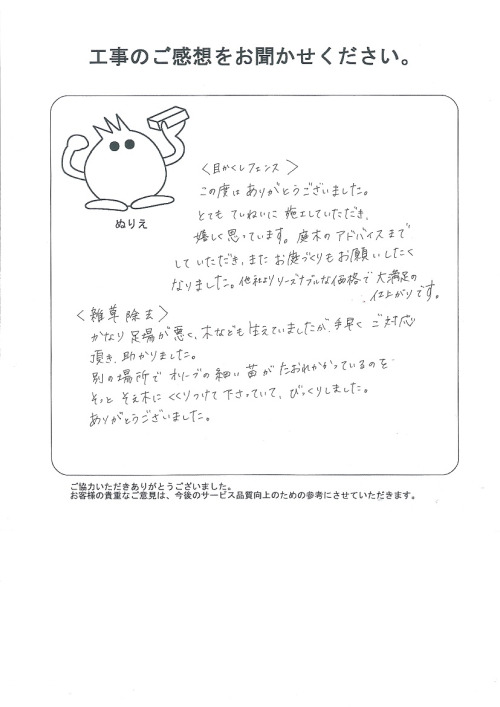 工事のご感想をお聞かせください。
ぬりえ
〈目かくしフェンス〉
この度はありがとうございました。
とても ていねいに 施工していただき、
嬉しく思っています。庭木の アドバイスまで
して いただき、また お庭づくりも お願いしたく
なりました。他社より リーズナブルな価格で 大満足の
仕上がりです。
〈雑草除去〉
かなり 足場が悪く、木なども 生えていましたが、手早く ご対応
頂き、助かりました。
別の場所で オリーブの 細い 苗が たおれかかっているのを
そっと そえ木に くくりつけて 下さっていて、びっくりしました。
ありがとうございました。
ご協力いただきありがとうございました。
お客様の貴重なご意見は、今後のサービス品質向上のための参考にさせていただきます。